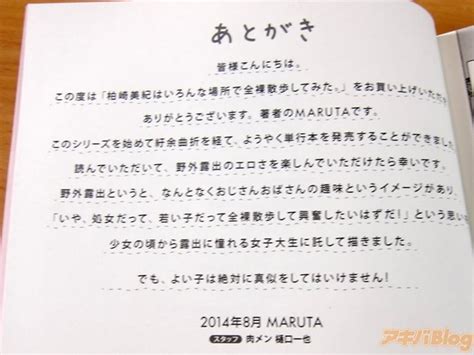 あとがき
皆様こんにちは。
この度は「柏崎美紀はいろんな場所で全裸散歩してみた。」をお買い上げいただき
ありがとうございます。著者のMARUTAです。
このシリーズを始めて紆余曲折を経て、ようやく単行本を発売することができました
読んでいただいて、野外露出のエロさを楽しんでいただけたら幸いです。
野外露出というと、なんとなくおじさんおばさんの趣味というイメージがあり、
「いや、処女だって、若い子だって全裸散歩して興奮したいはずだ!」という思い
少女の頃から露出に憧れる女子大生に託して描きました。
でも、よい子は絶対に真似をしてはいけません!
2014年8月 MARUTA
スタッフ 肉メン 樋口一也
アキバBlog